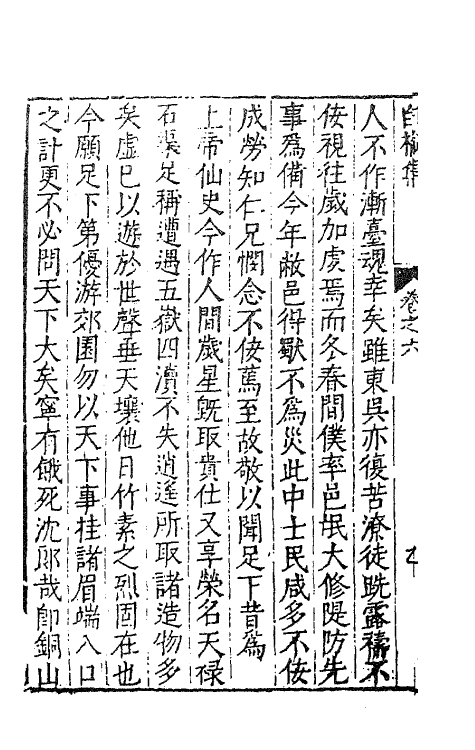 白榆集
卷之六
人不作漸臺魂幸矣雖東吳亦復苦潦徒跣露禱不
佞視往歲加虔焉而冬春間僕率邑氓大修隄防先
事為備今年敝邑得歉不為災此中士民咸多不佞
成勞知仁兄憫念不佞萬至故敬以聞足下昔為
上帝仙史今作人間歲星既取貴仕又享榮名天祿
石渠足稱遭遇五嶽四瀆不失逍遙所取諸造物多
矣虛已以遊於世聲垂天壤他日竹素之烈固在也
今願足下第優游郊園勿以天下事挂諸眉端入口
之計更不必問天下大矣寧有餓死沈郎哉即銅山